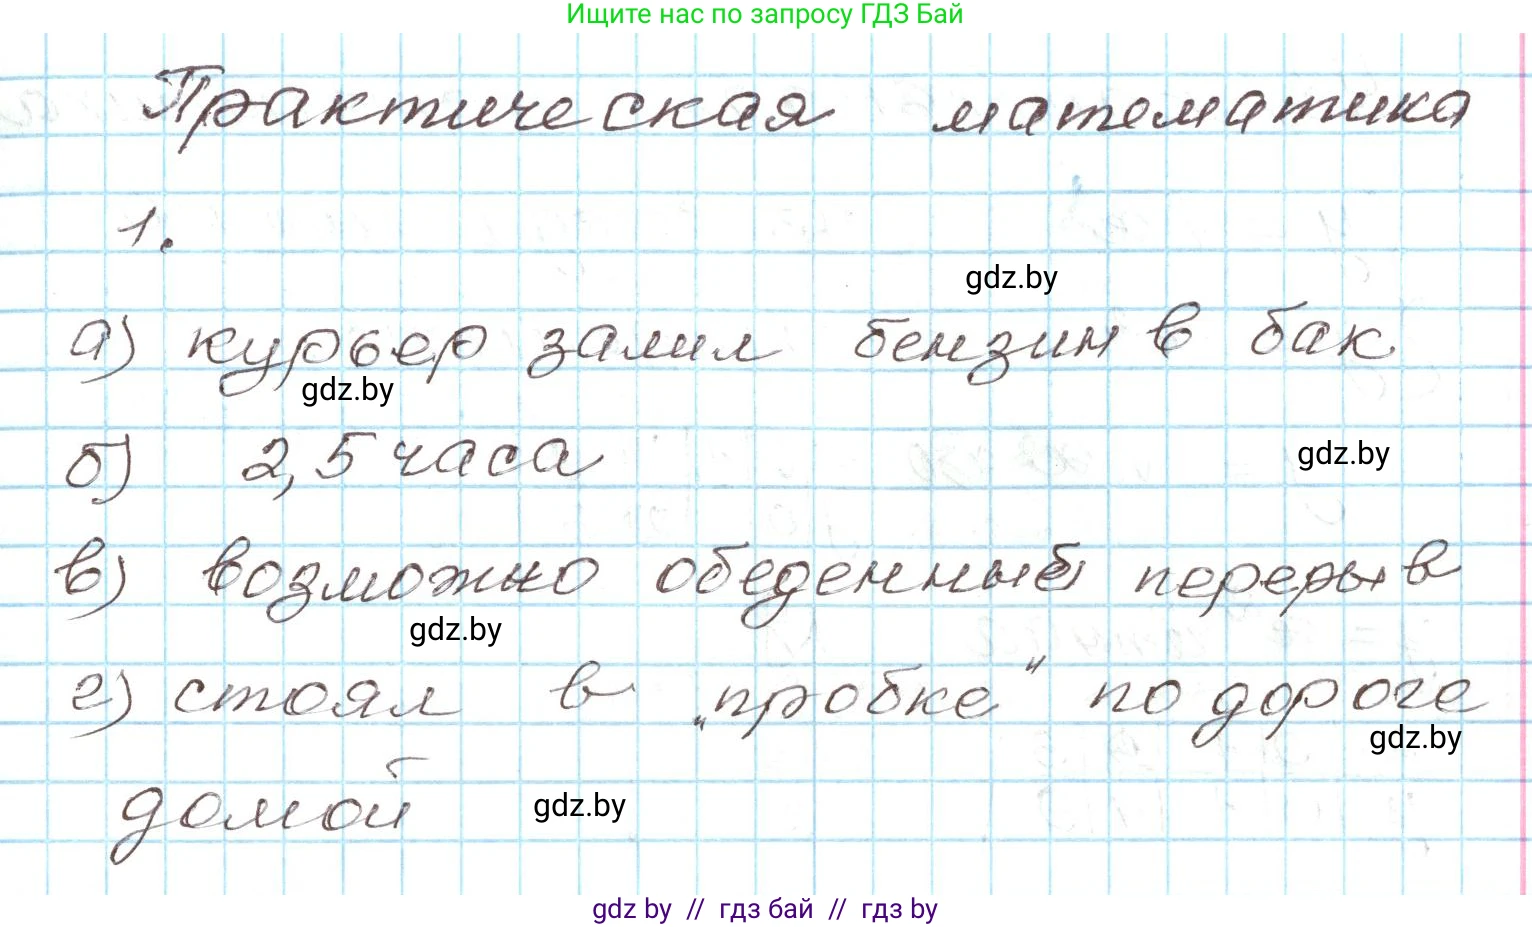 Ищите нас по запросу ГДЗ Бай
Практическая математика
1.
gdz.by
а) курьер залил бензин в бак
gdz.by
б) 2,5 часа
gdz.by
в) возможно обеденный перерыв
gdz.by
г) стоял в „пробке“ по дороге
gdz.by
домой
gdz.by
gdz by // гдз бай // гдз by